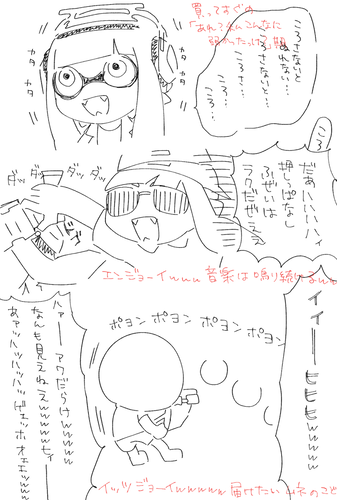 買ってすぐの
「あれ？私こんなに
弱かったっけ」期
ころさないと
ぬれない…
ころさないと…
ころ…
ころ…
カタ
カタ
カタ
カタ
ころ
だあハハハハィ
押しっぱなし
ふぜいは
ラクだぜええ
ダッ
ダッ
ダッ
ダッ
エンジョーイwwww 音楽は鳴り続けるwww
イイーーヒヒヒwwwww
ポヨン ポヨン ポヨン ポヨン
ハァー アワだらけwwwww
なんも見えねえwwwwwヒィ
あァッハッハッハッゲェッホオェェwwwww
イッツジョーイwwwww 届けたいwネのこと